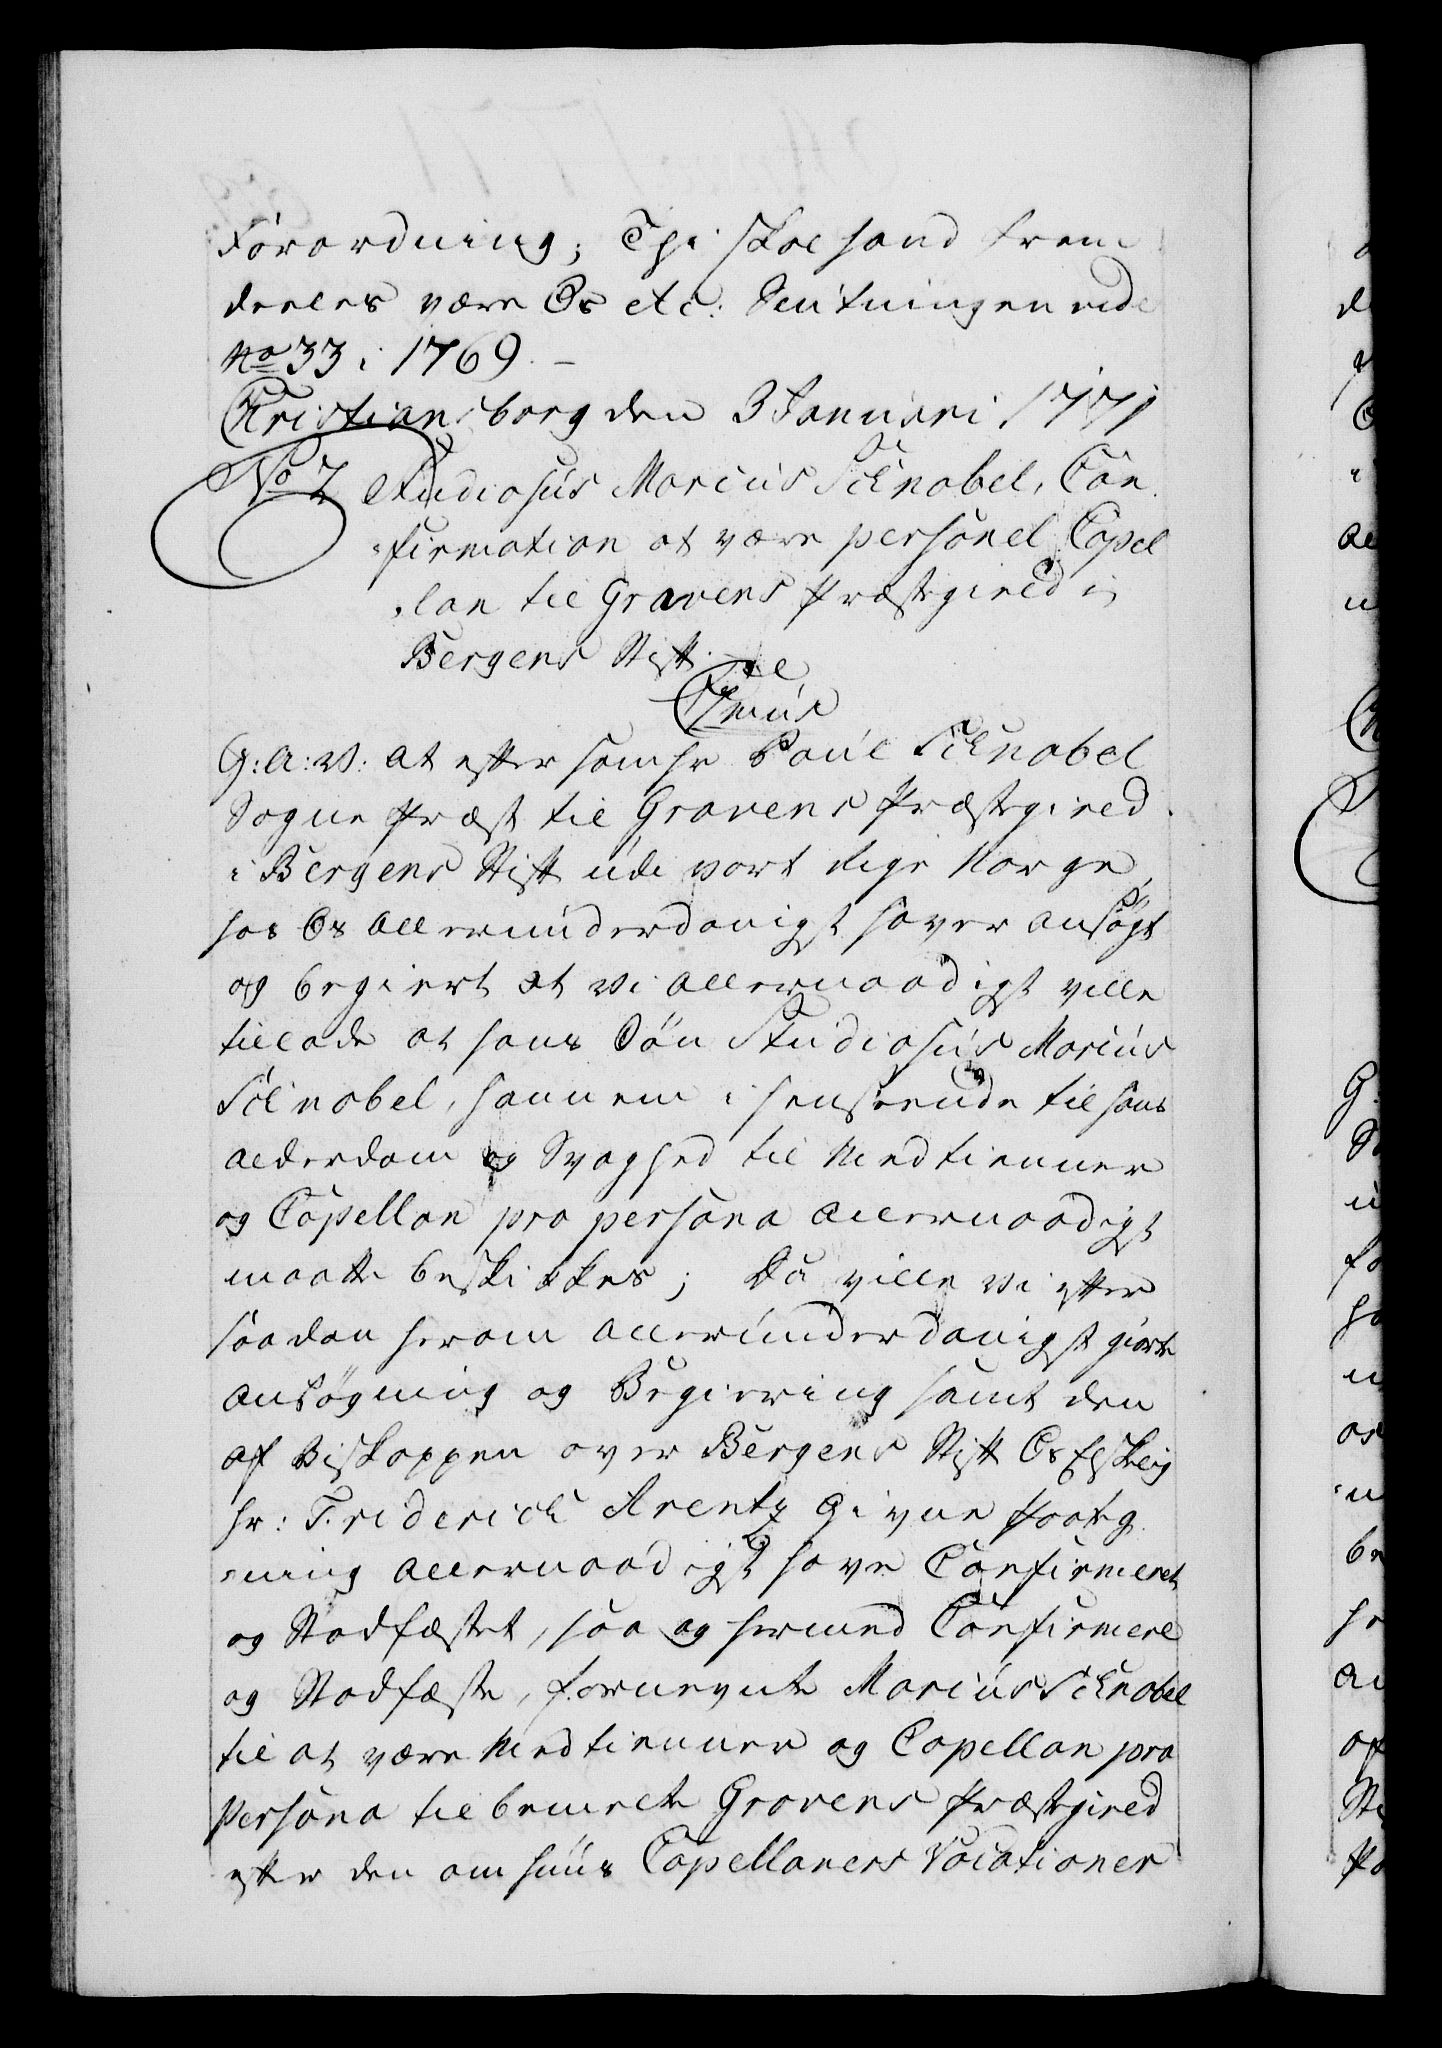 Forordning; Thi skal hand frem
deeles være Os etc: Slutningen vide
No 33 i 1769.
Christiansborg den 3 Januari 1771
No 2 Studiosus Marcus Schnabel, Con
=firmation at være personel Capel
=lan til Gravens Præstegield i
Bergens Stift.
G: A: V: at eftersom hr Poul Schnabel
Sogne Præst til Gravens Præstegield
i Bergens Stift udi vort Rige Norge,
hos Os allerunderdanigst haver ansøgt
og begiert at vi allernaadigst ville
tillade at hans Søn Studiosus Marcus
Schnabel, hannem i henseende til hans
alderdom og Svaghed til Medtienner
og Capellan pro persona allernaadigst
maatte beskikkes; Da ville vi efter
saadan herom allerunderdanigst giorte
ansøgning og Begiering samt den
af Biskoppen over Bergens Stift Os Elskelig
hr: Friderich Arentz Givne Paateg
=ning allernaadigst have Confirmeret
og Stadfæstet, saa og hermed Confirmere
og Stadfæste, fornevnte Marcus Schnabel
til at være Medtienner og Capellan pro
Persona til bemelte Gravens Præstegield
efter den om huus Capellaners Vocationer